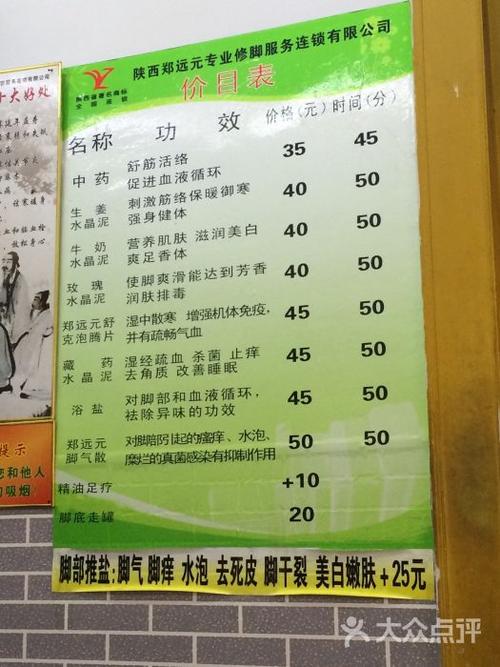 陕西郑远元专业修脚服务连锁有限公司
陕西省著名商标
全国连锁
价目表
名称 功效 价格(元) 时间(分)
中药 舒筋活络 35 45
促进血液循环
生姜 刺激筋络保暖御寒 40 50
水晶泥 强身健体
牛奶 营养肌肤 滋润美白 40 50
水晶泥 爽足香体
玫瑰 使脚爽滑能达到芳香 40 50
水晶泥 润肤排毒
郑远元舒 湿中散寒 增强机体免疫, 45 50
克泡腾片 并有疏畅气血
藏药 湿经疏血 杀菌 止痒 45 50
水晶泥 去角质 改善睡眠
浴盐 对脚部和血液循环, 45 50
祛除异味的功效
郑远元 对脚部引起的瘙痒、水泡、 50 50
脚气散 糜烂的真菌感染有抑制作用
精油足疗 +10
脚底走罐 20
脚部推盐:脚气 脚痒 水泡 去死皮 脚干裂 美白嫩肤+25元
十大好处
提示
您和他人
的吸烟
大众点评